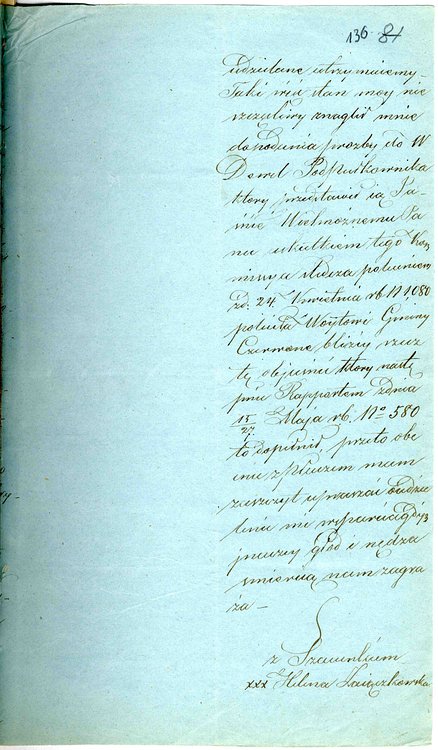 136 81
udzielane utrzymuiemy –
Taki więc stan moy nie
szczęśliwy znaglił mnie
do podania prozby do W
Dowód Podpułkownika
ktory przedstawił ią Ja
śnie Wielmożnemu Pa
nu skutkiem tego Kom
missya Sledcza poleceniem
zd: 24 Kwietnia rb N 1080
poleciła Woytowi Gminy
Czerwone bliżey rzecz
tę obiasnić ktory nastę
pnie Rapportem z dnia
15/27 Maja rb. No 580
to dopełnił, przeto obe
cnie z Płaczem mam
zaszczyt upraszać o udzie
lenie mi wsparcia gdyż
inaczey głod i nędza
smiercią nam zagra
ża –
z Szacunkiem
xxx Helena Zaiączkowska